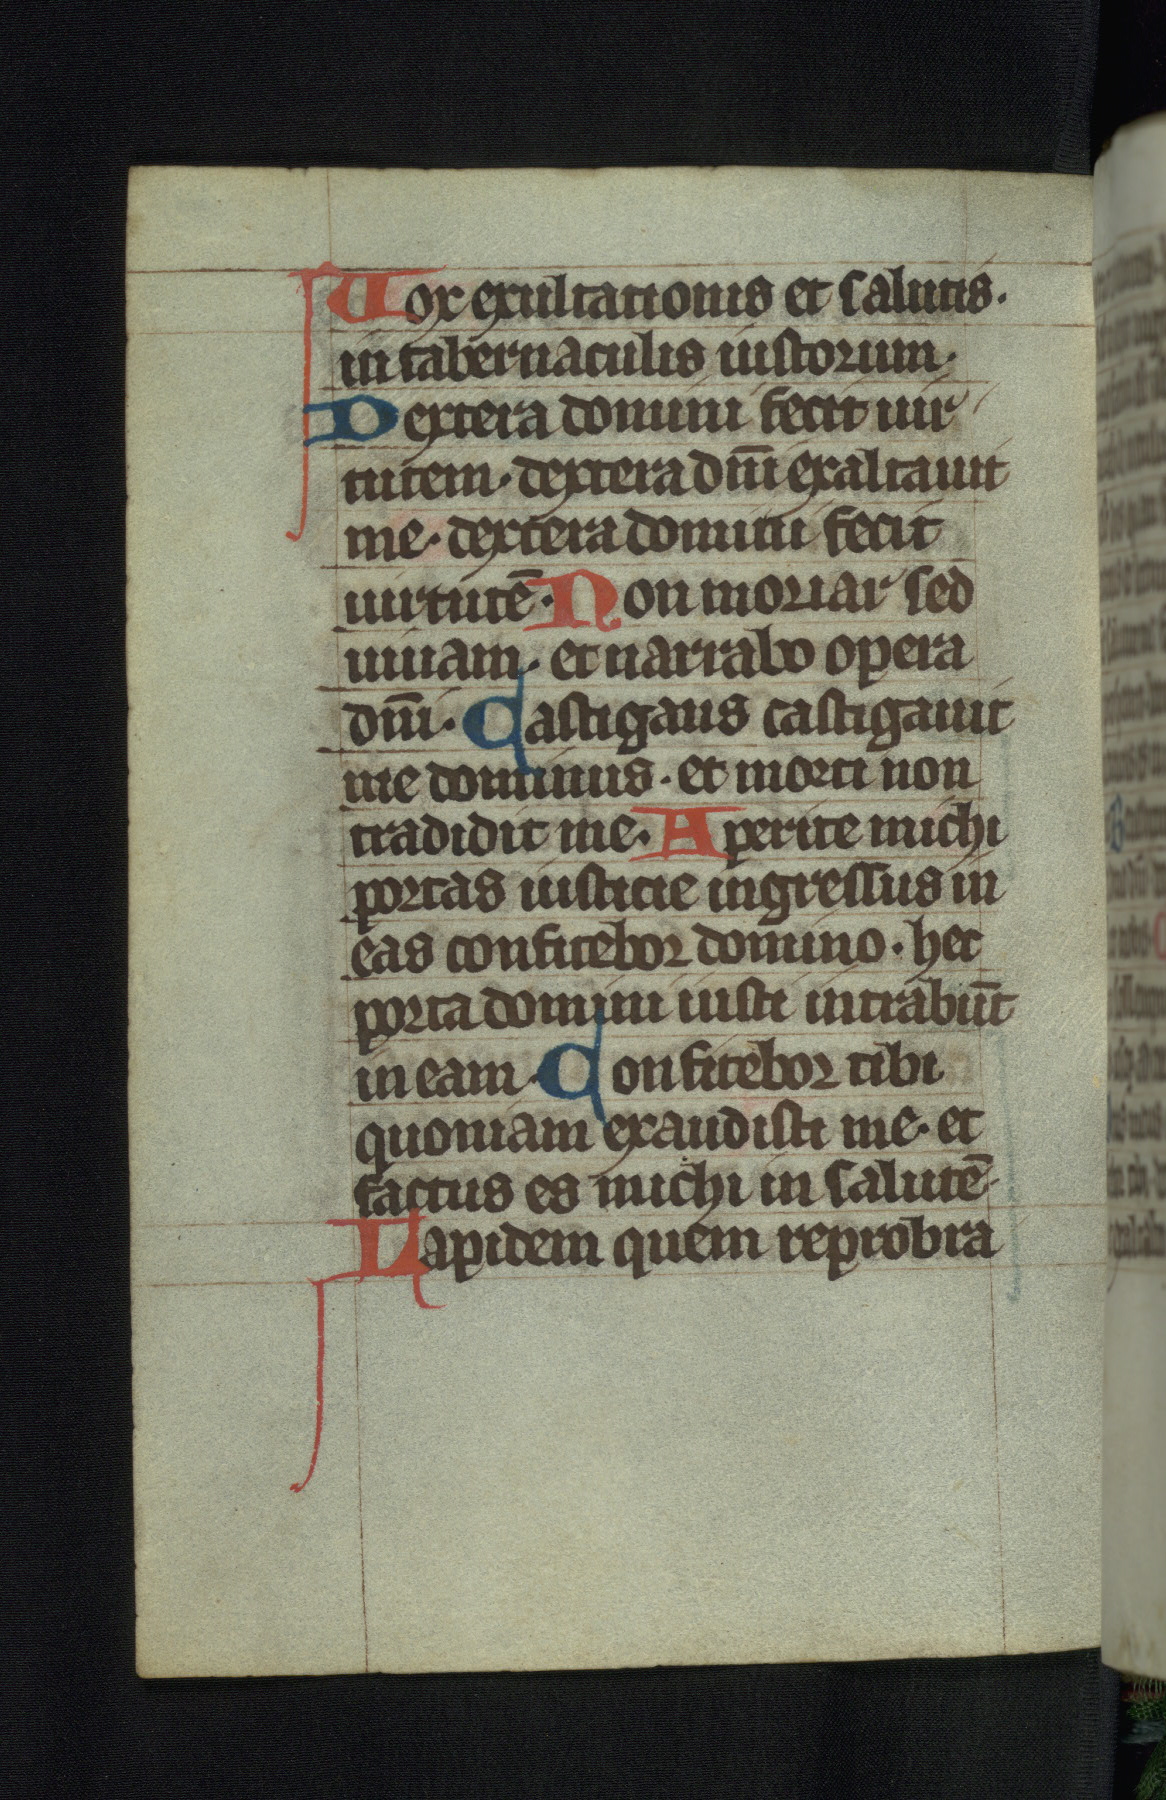 Vox exultationis et salutis.
in tabernaculis iustorum.
Dextera domini fecit uir
tutem. dextera dn̄i exaltauit
me. dextera domini fecit
uirtutē. Non moriar sed
uiuam. et narrabo opera
dn̄i. Castigans castigauit
me dominus. et morti non
tradidit me. Aperite michi
portas iusticie ingressus in
eas confitebor domino. hec
porta domini iusti intrabūt
in eam. Confitebor tibi
quoniam exaudisti me. et
factus es michi in salutē
Lapidem quem reprobra